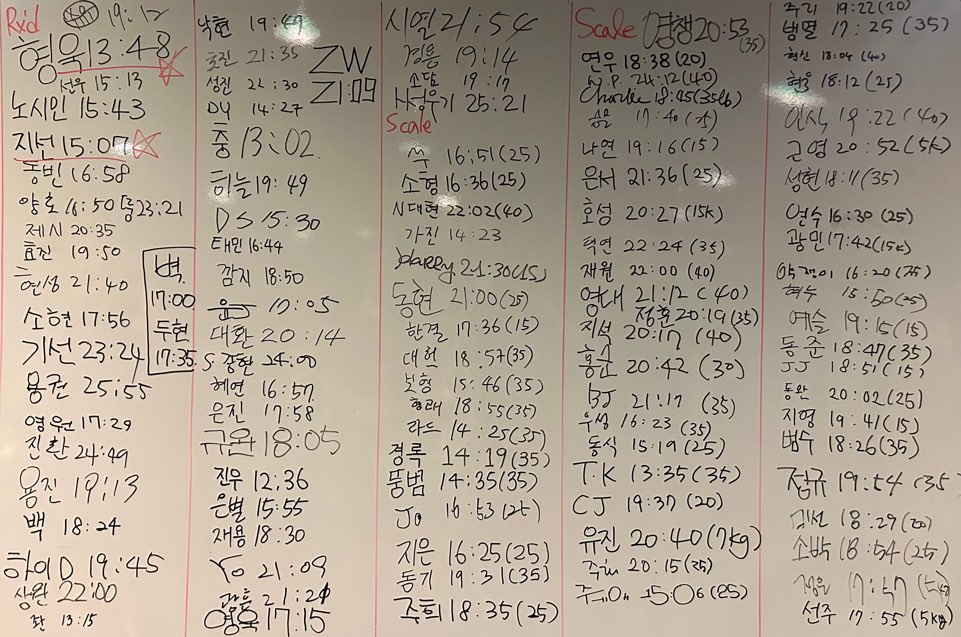 Rx'd
19:12
형욱 13:48
선우 15:13
노시민 15:43
지선 15:07
동빈 16:58
양호 16:50 홈 23:21
제시 20:35
효진 19:50
현성 21:40
소현 17:56
기선 23:24
용권 25:55
영원 17:29
진환 24:49
용진 19:13
백 18:24
하이D 19:45
상완 22:00
좌 13:15
벽
17:00
두현
17:35
낙현 19:47
효진 21:35
성진 22:30
DY 14:27
ZW
21:09
중 13:02
하늘 19:49
DS 15:30
태민 16:44
깜지 18:50
대환 20:14
S 종현 24:00
혜연 16:57
은진 17:58
규완 18:05
진우 12:36
은별 15:55
재용 18:30
Yo 21:09
영욱 17:15
시열 21:54
경륜 19:14
소담 19:17
25:21
Scale
쑥 16:51 (25)
소형 16:36 (25)
시대현 22:02 (40)
가진 14:23
21:30 (15)
동현 21:00 (25)
한결 17:36 (15)
대헌 18:57 (35)
보형 15:46 (35)
형래 18:55 (35)
라드 14:25 (35)
경록 14:19 (35)
뚱범 14:35 (35)
Jo 16:53 (25)
지은 16:25 (25)
동기 19:31 (35)
주희 18:35 (25)
Scale
경쟁 20:53 (35)
연우 18:38 (20)
N.P. 24:12 (40)
Charlie 18:45 (35lb)
17:40
나연 19:16 (15)
은서 21:36 (25)
효성 20:27 (15k)
택연 22:24 (35)
재원 22:00 (40)
영대 21:12 (40)
정훈 20:19 (35)
지석 20:17 (40)
홍준 20:42 (30)
BJ 21:17 (35)
우성 16:23 (35)
동식 15:19 (25)
T.K 13:35 (35)
CJ 19:37 (20)
유진 20:40 (7kg)
20:15 (35)
15:06
주리 19:22 (20)
범열 17:25 (35)
혁신 18:04 (40)
18:12 (25)
인식 19:22 (40)
근영 20:52 (5k)
성현 18:11 (35)
연수 16:30 (25)
광민 17:42 (15k)
16:20
혁수 15:50 (25)
예슬 19:15 (15)
동준 18:47 (35)
JJ 18:51 (15)
동완 20:02 (25)
지영 19:41 (15)
범수 18:26 (35)
정규 19:54 (35
김선 18:29 (20)
소박 18:54 (25)
정은 17:57
선주 17:55 (5kg)